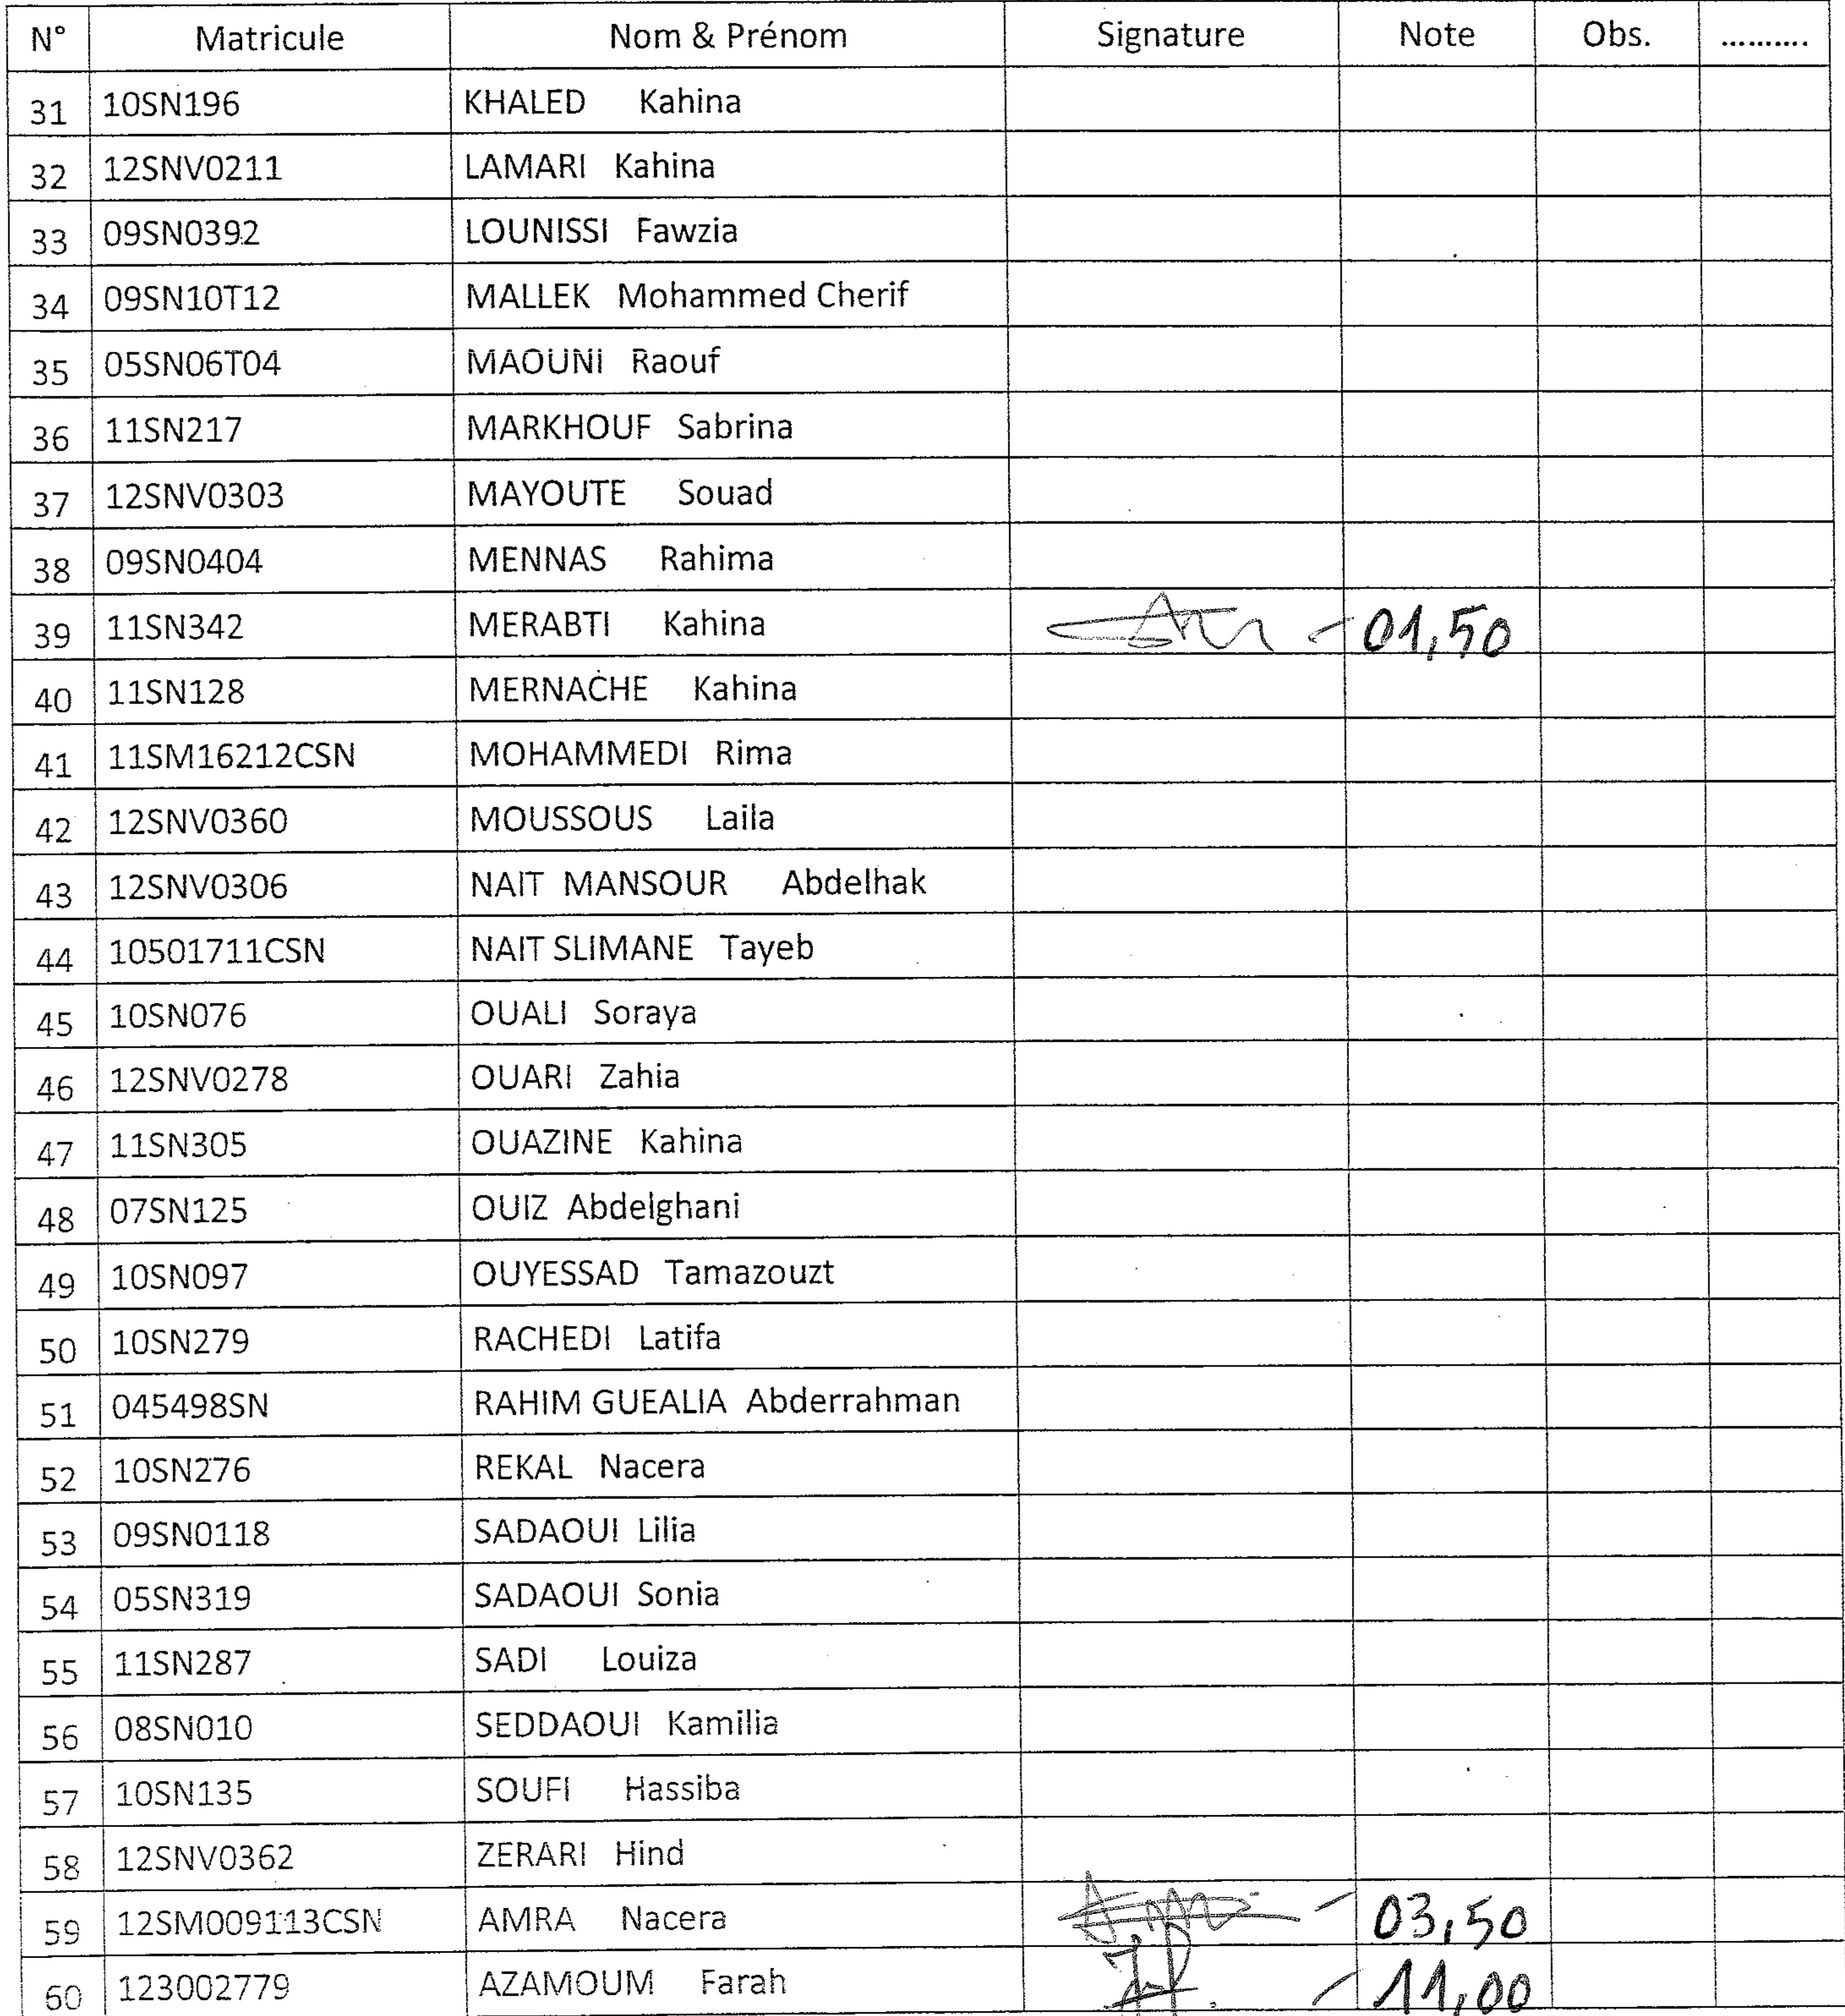 N° Matricule Nom & Prénom Signature Note Obs. ..........
31 10SN196 KHALED Kahina
32 12SNV0211 LAMARI Kahina
33 09SN0392 LOUNISSI Fawzia
34 09SN10T12 MALLEK Mohammed Cherif
35 05SN06T04 MAOUNI Raouf
36 11SN217 MARKHOUF Sabrina
37 12SNV0303 MAYOUTE Souad
38 09SN0404 MENNAS Rahima
39 11SN342 MERABTI Kahina 01,50
40 11SN128 MERNACHE Kahina
41 11SM16212CSN MOHAMMEDI Rima
42 12SNV0360 MOUSSOUS Laila
43 12SNV0306 NAIT MANSOUR Abdelhak
44 10501711CSN NAIT SLIMANE Tayeb
45 10SN076 OUALI Soraya
46 12SNV0278 OUARI Zahia
47 11SN305 OUAZINE Kahina
48 07SN125 OUIZ Abdelghani
49 10SN097 OUYESSAD Tamazouzt
50 10SN279 RACHEDI Latifa
51 045498SN RAHIM GUEALIA Abderrahman
52 10SN276 REKAL Nacera
53 09SN0118 SADAOUI Lilia
54 05SN319 SADAOUI Sonia
55 11SN287 SADI Louiza
56 08SN010 SEDDAOUI Kamilia
57 10SN135 SOUFI Hassiba
58 12SNV0362 ZERARI Hind
59 12SM009113CSN AMRA Nacera 03,50
60 123002779 AZAMOUM Farah 11,00